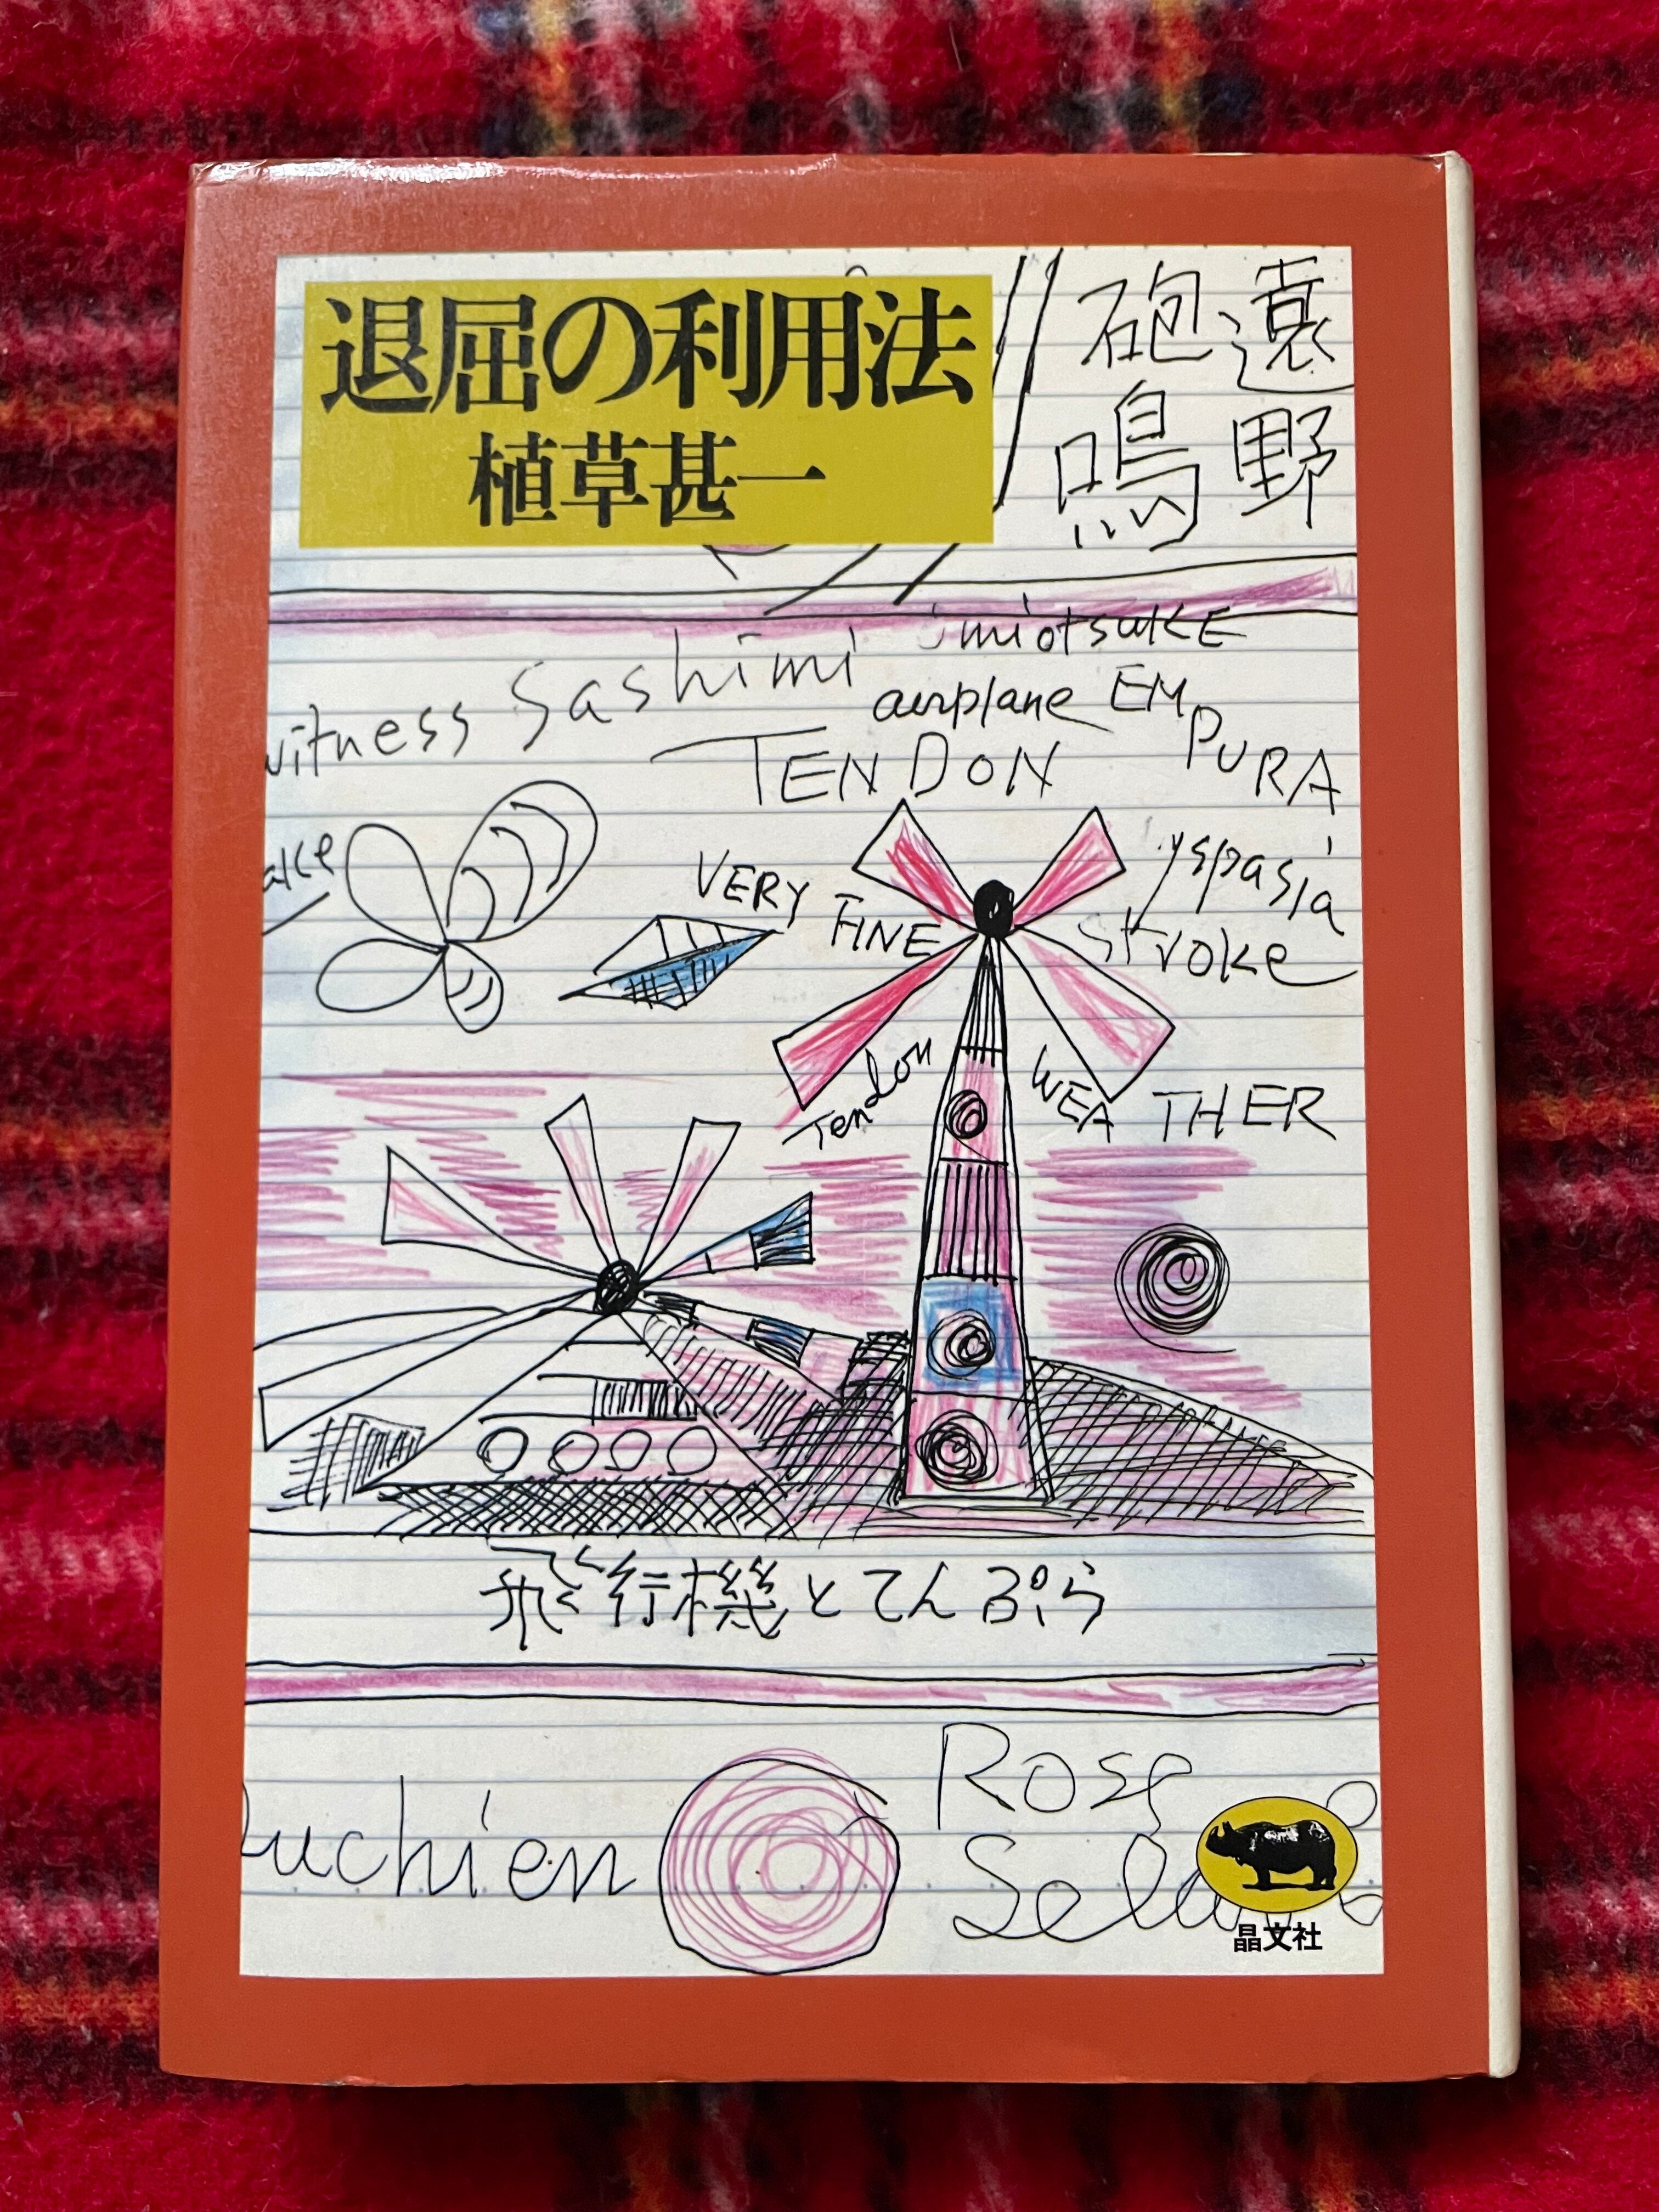 退屈の利用法
植草甚一
遠野
砲鳴
miotsuke
witness Sashimi
airplane EMPURA
TENDON
ake
VERY FINE
yspasia
stroke
Tendon
WEATHER
飛行機とてんぷら
uchien
Rose
晶文社